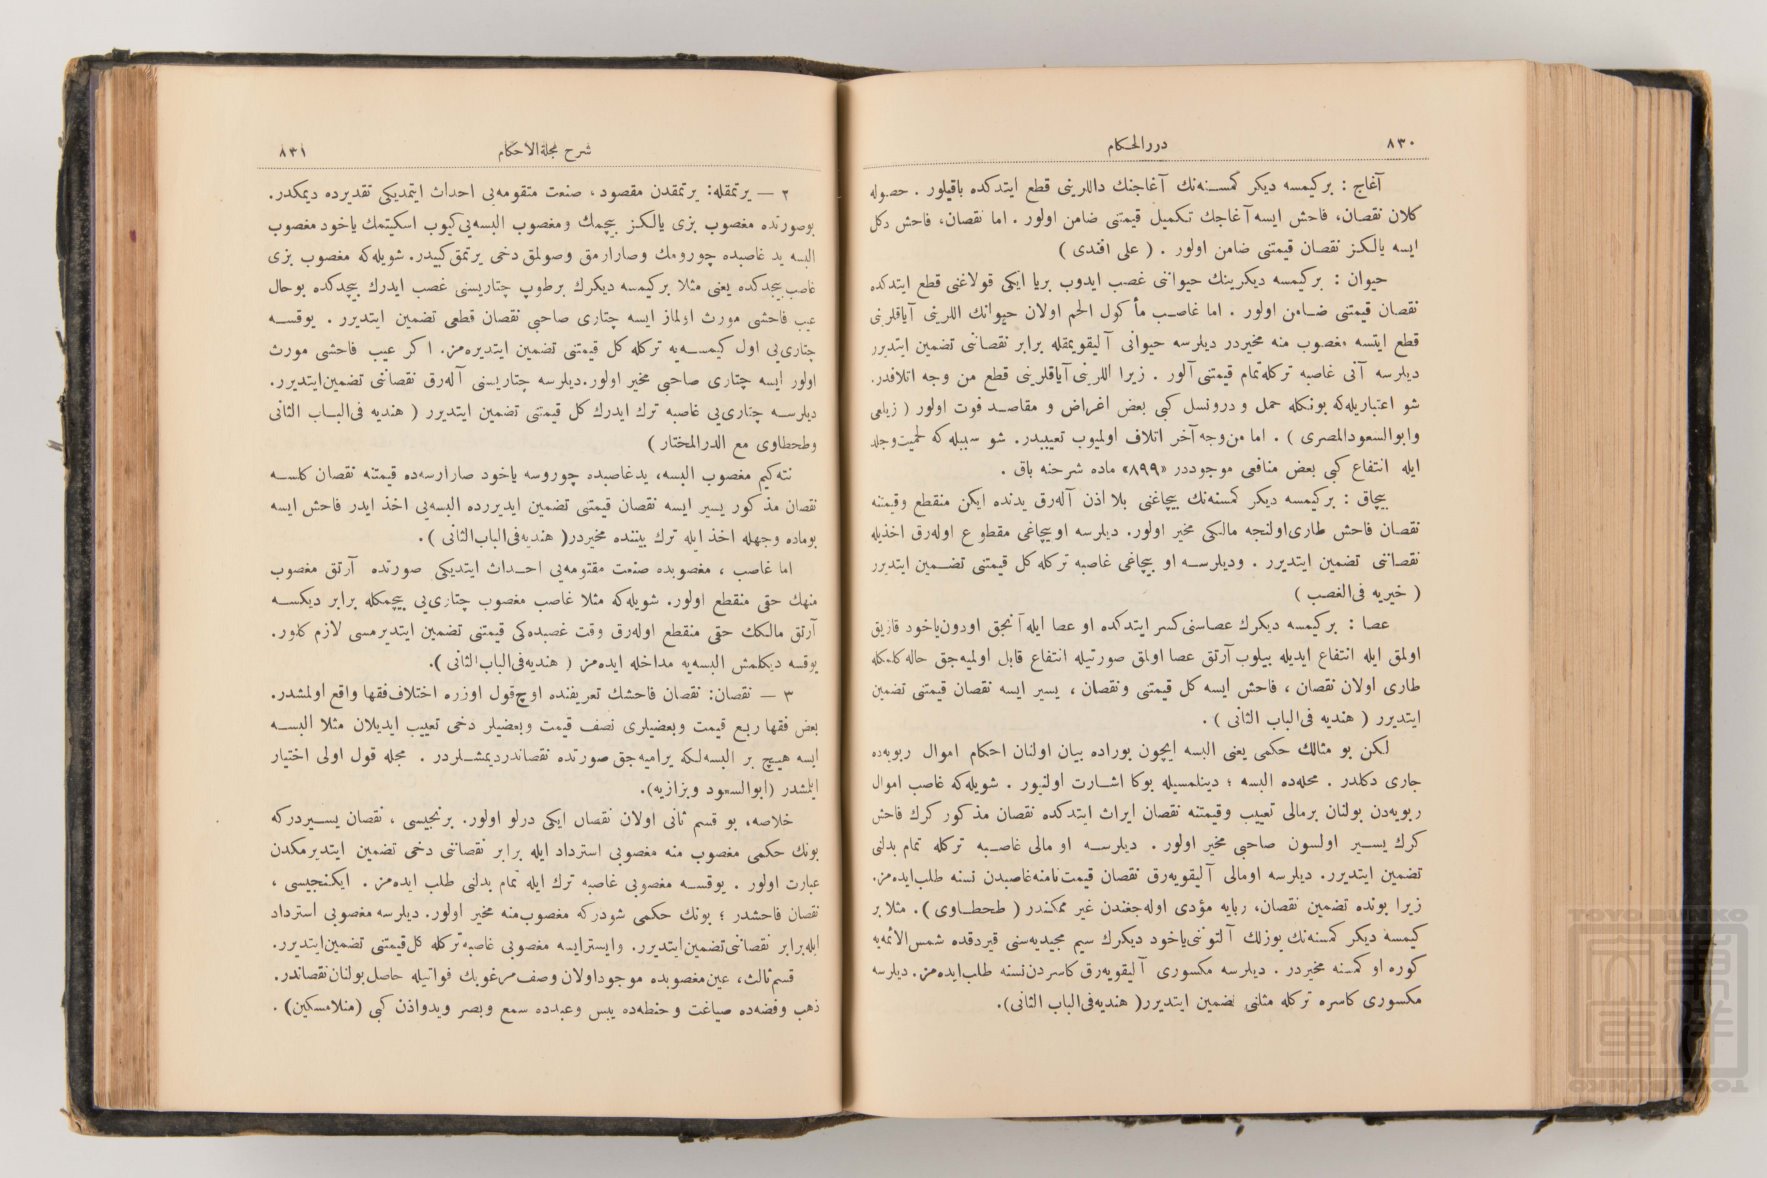 ٨٣٠
دررالحكام
آغاج : بركیمسه دیكر كمسنه‌نك آغاجنك داللرینی قطع ایتدكده باقیلور . حصوله
كلان نقصان، فاحش ایسه آغاجك تكمیل قیمتنی ضامن اولور . اما نقصان، فاحش دكل
ایسه یالكز نقصان قیمتنی ضامن اولور . ( علی افندی )
حیوان : بركیمسه دیكرینك حیواننی غصب ایدوب بریا ایكی قولاغنی قطع ایتدكده
نقصان قیمتنی ضامن اولور . اما غاصب مأكول اللحم اولان حیوانك اللرینی آیاقلرینی
قطع ایتسه مغصوب منه مخیردر دیلرسه حیوانی آلیقویمقله برابر نقصاننی تضمین ایتدیرر
دیلرسه آنی غاصبه تركله تمام قیمتنی آلور . زیرا اللرینی آیاقلرینی قطع من وجه اتلافدر.
شو اعتباریله‌كه بونكله حمل و درونسل كبی بعض اغراض و مقاصد فوت اولور ( زیلعی
وابوالسعودالمصری ) . اما من‌وجه آخر اتلاف اولمیوب تعییبدر. شو سببله كه لحمیت وجلد
ایله انتفاع كبی بعض منافعی موجوددر «٨٩٩» ماده شرحنه باق .
بیچاق : بركیمسه دیكر كمسنه‌نك بیچاغنی بلا اذن آله‌رق یدنده ایكن منقطع وقیمتنه
نقصان فاحش طاری‌اولنجه مالكی مخیر اولور. دیلرسه اوبیچاغی مقطوع اوله‌رق اخذیله
نقصاننی تضمین ایتدیرر . ودیلرسه او بیچاغی غاصبه تركله كل قیمتنی تضمین ایتدیرر
( خیریه فی‌الغصب )
عصا : بركیمسه دیكرك عصاسنی كسر ایتدكده او عصا ایله آنجق اودون‌یاخود قازیق
اولمق ایله انتفاع ایدیله بیلوب آرتق عصا اولمق صورتیله انتفاع قابل اولمیه‌جق حاله كلمكله
طاری اولان نقصان ، فاحش ایسه كل قیمتنی ونقصان ، یسیر ایسه نقصان قیمتنی تضمین
ایتدیرر ( هندیه فی‌الباب الثانی ) .
لكن بو مثالك حكمی یعنی البسه ایچون بوراده بیان اولنان احكام اموال ربویه‌ده
جاری دكلدر . مجله‌ده البسه ؛ دینلمسیله بوكا اشارت اولنیور . شویله‌كه غاصب اموال
ربویه‌دن بولنان برمالی تعییب وقیمتنه نقصان ایراث ایتدكده نقصان مذكور كرك فاحش
كرك یسیر اولسون صاحبی مخیر اولور . دیلرسه او مالی غاصبه تركله تمام بدلنی
تضمین ایتدیرر. دیلرسه اومالی آلیقویه‌رق نقصان قیمت‌نامنه‌غاصبدن نسنه طلب‌ایده‌مز.
زیرا بونده تضمین نقصان، ربایه مؤدی اوله‌جغندن غیر ممكندر ( طحطاوی ) . مثلا بر
كیمسه دیكر كمسنه‌نك یوزلك آلتوننی‌یاخود دیكرك سیم مجیدیه‌سنی قیردقده شمس‌الأئمه‌یه
كوره او كمسنه مخیردر . دیلرسه مكسوری آلیقویه‌رق كاسردن‌نسنه طلب‌ایده‌مز. دیلرسه
مكسوری كاسره تركله مثلنی تضمین ایتدیرر( هندیه‌فی‌الباب الثانی).
شرح مجلةالاحكام
٨٣١
٢ — یرتمقله: یرتمقدن مقصود، صنعت متقومه‌یی احداث ایتمدیكی تقدیرده دیمكدر.
بوصورتده مغصوب بزی یالكز بیچمك ومغصوب البسه‌یی‌كیوب اسكیتمك یاخود مغصوب
البسه ید غاصبده چورومك وصارارمق وصولمق دخی یرتمق‌كبیدر. شویله‌كه مغصوب بزی
غاصب بیچدكده یعنی مثلا بركیمسه دیكرك برطوپ چتاریسنی غصب ایدرك بیچدكده بوحال
عیب فاحشی مورث اولماز ایسه چتاری صاحبی نقصان قطعی تضمین ایتدیرر . یوقسه
چتاری‌یی اول كیمسه‌یه تركله كل قیمتنی تضمین ایتدیره‌مز. اكر عیب فاحشی مورث
اولور ایسه چتاری صاحبی مخیر اولور.دیلرسه چتاریسنی آله‌رق نقصاننی تضمین‌ایتدیرر.
دیلرسه چتاری‌یی غاصبه ترك ایدرك كل قیمتنی تضمین ایتدیرر ( هندیه فی‌الباب الثانی
وطحطاوی مع الدرالمختار )
نته‌كیم مغصوب البسه، یدغاصبده چوروسه یاخود صارارسه‌ده قیمتنه نقصان كلسه
نقصان مذكور یسیر ایسه نقصان قیمتنی تضمین ایدیررده البسه‌یی اخذ ایدر فاحش ایسه
بوماده وجهله اخذ ایله ترك بیننده مخیردر( هندیه‌فی‌الباب‌الثانی ) .
اما غاصب ، مغصوبده صنعت مقتومه‌یی احداث ایتدیكی صورتده آرتق مغصوب
منهك حقی منقطع اولور. شویله‌كه مثلا غاصب مغصوب چتاری‌یی بیچمكله برابر دیكسه
آرتق مالكك حقی منقطع اوله‌رق وقت غصبده‌كی قیمتنی تضمین ایتدیرمسی لازم كلور.
یوقسه دیكلمش البسه‌یه مداخله ایده‌مز ( هندیه‌فی‌الباب‌الثانی ).
٣ — نقصان: نقصان فاحشك تعریفنده اوچ‌قول اوزره اختلاف‌فقها واقع اولمشدر.
بعض فقها ربع قیمت وبعضیلری نصف قیمت وبعضیلر دخی تعییب ایدیلان مثلا البسه
ایسه هیچ بر البسه‌لكه یرامیه‌جق صورتده نقصاندردیمشلردر . مجله قول اولی اختیار
ایلشدر (ابوالسعود وبزازیه).
خلاصه، بو قسم ثانی اولان نقصان ایكی درلو اولور. برنجیسی ، نقصان یسیردركه
بونك حكمی مغصوب منه مغصوبی استرداد ایله برابر نقصاننی دخی تضمین ایتدیرمكدن
عبارت اولور . یوقسه مغصوبی غاصبه ترك ایله تمام بدلنی طلب ایده‌مز . ایكنجیسی ،
نقصان فاحشدر ؛ بونك حكمی شودركه مغصوب‌منه مخیر اولور. دیلرسه مغصوبی استرداد
ایله‌برابر نقصاننی‌تضمین‌ایتدیرر. وایسترایسه مغصوبی غاصبه‌تركله كل‌قیمتنی تضمین‌ایتدیرر.
قسم‌ثالث، عین‌مغصوبده موجوداولان وصف‌مرغوبك فواتیله حاصل‌بولنان‌نقصاندر.
ذهب وفضه‌ده صیاغت وحنطه‌ده یبس وعبدده سمع وبصر ویدواذن كبی (منلامسكین) .
TOYO BUNKO
東洋文庫
TOYO BUNKO